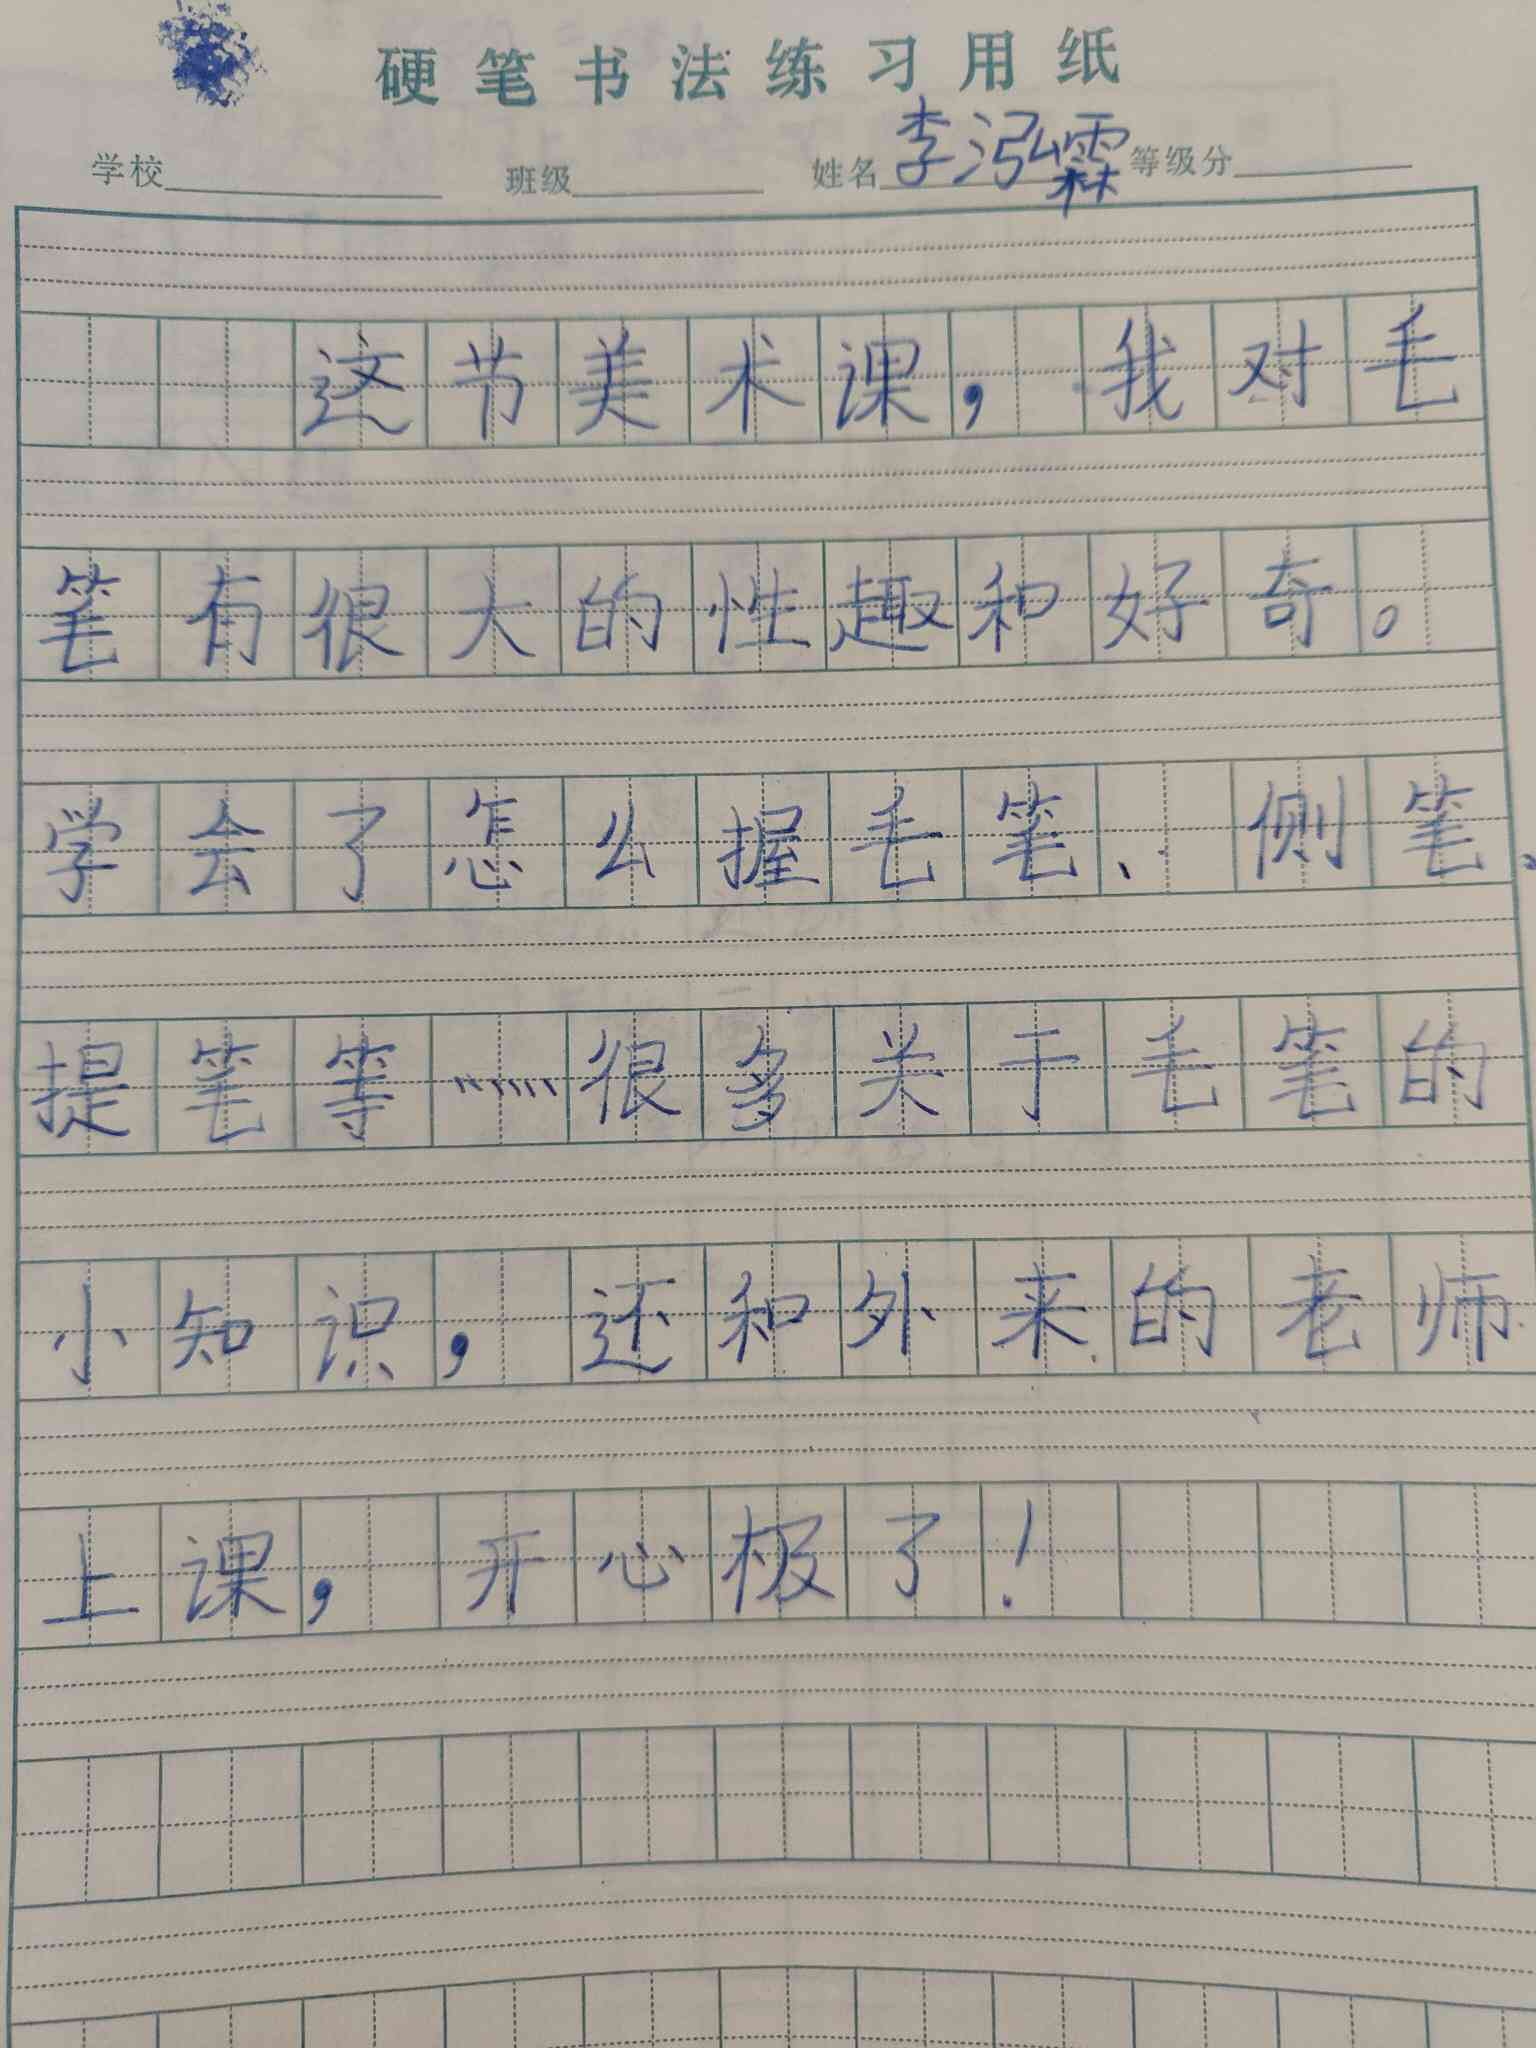 硬笔书法练习用纸
学校 班级 姓名 李泓霖 等级分
这节美术课，我对毛
笔有很大的性趣和好奇。
学会了怎么握毛笔、侧笔、
提笔等……很多关于毛笔的
小知识，还和外来的老师
上课，开心极了！